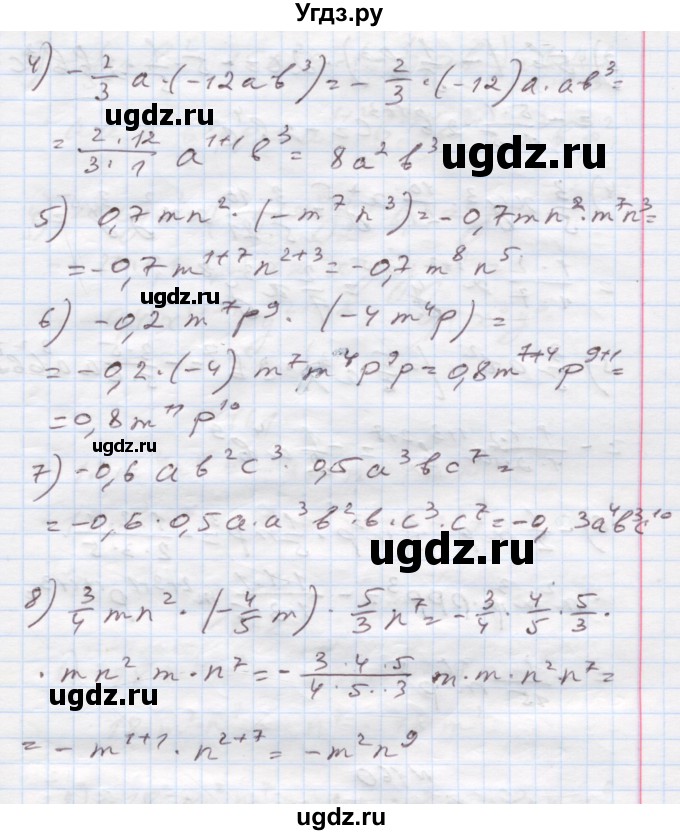 Угдз.ру
4) -2/3 a·(-12ab³)= -2/3·(-12)a·ab³=
= (2·12)/(3·1) a¹⁺¹b³= 8a²b³
ugdz.ru
ugdz.ru
5) 0,7mn²·(-m⁷n³)=-0,7mn²·m⁷n³=
=-0,7m¹⁺⁷n²⁺³=-0,7m⁸n⁵
ugdz.ru
6) -0,2 m⁷p⁹·(-4m⁴p)=
=-0,2·(-4) m⁷m⁴p⁹p=0,8m⁷⁺⁴p⁹⁺¹=
=0,8m¹¹p¹⁰
ugdz.ru
7) -0,6ab²c³·0,5a³bc⁷=
=-0,6·0,5a·a³b²·b·c³·c⁷=-0,3a⁴b³c¹⁰
ugdz.ru
8) 3/4 mn²·(-4/5 m)·5/3 n⁷=-3/4·4/5·5/3·
·mn²·m·n⁷=-(3·4·5)/(4·5·3) m·m·n²·n⁷=
ugdz.ru
=-m¹⁺¹·n²⁺⁷=-m²n⁹
ugdz.ru